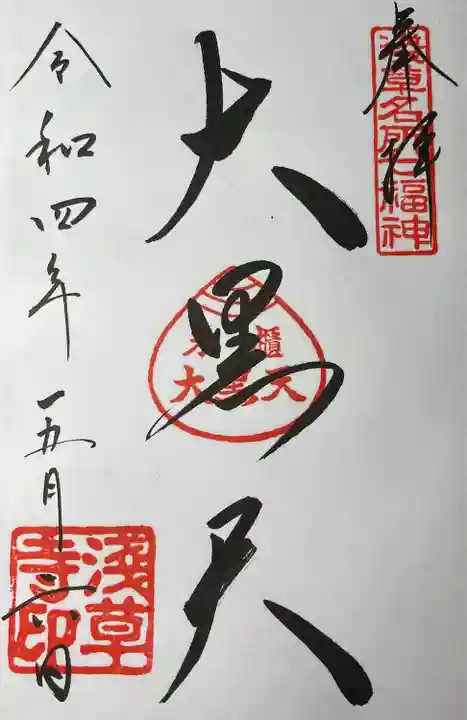 奉拝
浅草名所七福神
大黒天
米櫃
大黒天
令和四年五月
浅草
寺印